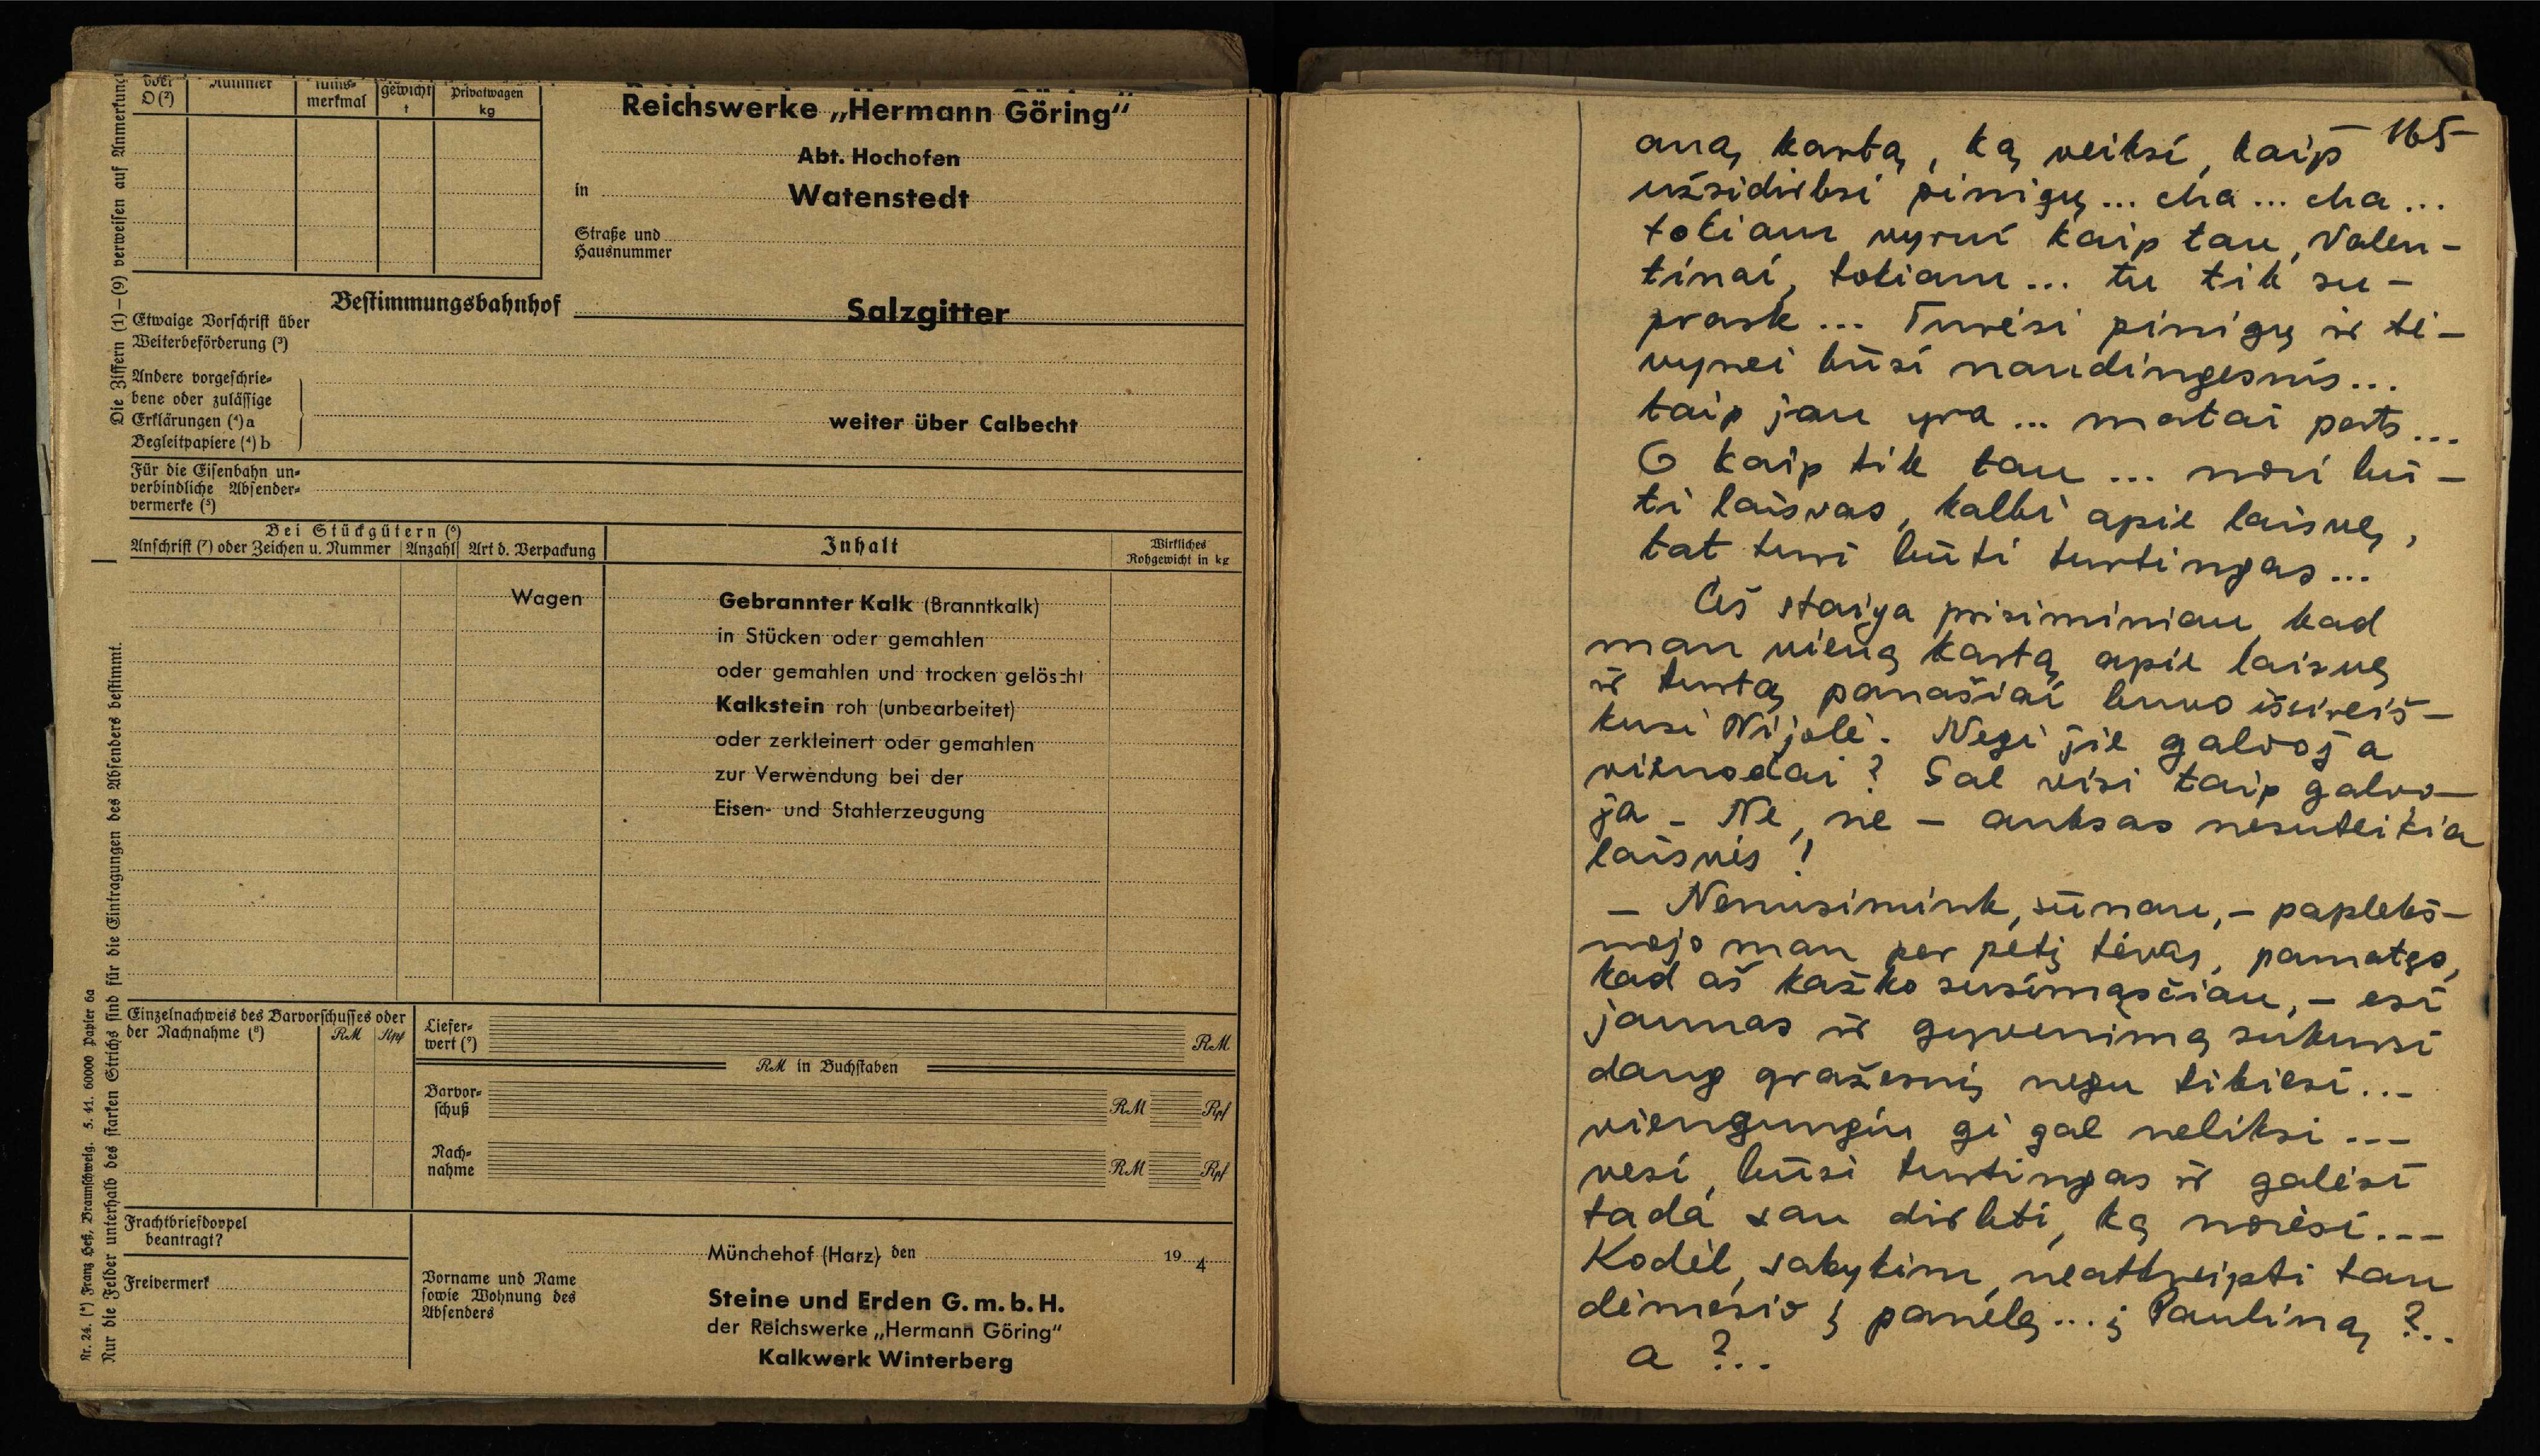 oder
D (²)
Nummer
merkmal
gewicht
t
Privatwagen
kg
Die Ziffern (1)–(9) verweisen auf Anmerkung
Reichswerke „Hermann Göring"
Abt. Hochofen
in
Watenstedt
Straße und
Hausnummer
Bestimmungsbahnhof
Salzgitter
Etwaige Vorschrift über
Weiterbeförderung (³)
Andere vorgeschrie-
bene oder zulässige
Erklärungen (⁴) a
Begleitpapiere (⁴) b
weiter über Calbecht
Für die Eisenbahn un-
verbindliche Absender-
vermerke (⁵)
Bei Stückgütern (⁶)
Anschrift (⁷) oder Zeichen u. Nummer
Anzahl
Art d. Verpackung
Inhalt
Wirkliches
Rohgewicht in kg
Wagen
Gebrannter Kalk (Branntkalk)
in Stücken oder gemahlen
oder gemahlen und trocken gelöscht
Kalkstein roh (unbearbeitet)
oder zerkleinert oder gemahlen
zur Verwendung bei der
Eisen- und Stahlerzeugung
Nur die Felder unterhalb des starken Strichs sind für die Eintragungen des Absenders bestimmt.
Nr. 24. (*) Franz Heß, Braunschweig. 5. 41. 60000 Papier 6a
Einzelnachweis des Barvorschusses oder
der Nachnahme (⁸)
RM
Rpf
Liefer-
wert (⁹)
RM
RM in Buchstaben
Barvor-
schuß
RM
Rpf
Nach-
nahme
RM
Rpf
Frachtbriefdoppel
beantragt?
Freivermerk
Münchehof (Harz), den
19 4
Vorname und Name
sowie Wohnung des
Absenders
Steine und Erden G. m. b. H.
der Reichswerke „Hermann Göring"
Kalkwerk Winterberg
165
aną kartą, ką veiksi, kaip
užsidirbsi pinigų... cha... cha...
tokiam vyrui kaip tau, Valen-
tinai, tokiam... tu tik su-
prask... Turėsi pinigų ir tė-
vynei būsi naudingesnis...
taip jau yra... matai pats...
O kaip tik tau... nori bū-
ti laisvas, kalbi apie laisvę,
tat turi būti turtingas...
Aš staiga prisiminiau, kad
man vieną kartą apie laisvę
ir turtą panašiai buvo išsireiš-
kusi Nijolė. Negi jie galvoja
vienodai? Gal visi taip galvo-
ja – Ne, ne – auksas nesuteikia
laisvės!
– Nenusimink, sūnau, – paplekš-
nojo man per petį tėvas, pamatęs,
kad aš kažko susimąsčiau, – esi
jaunas ir gyvenimą sukursi
daug gražesnį negu tikiesi...
viengungiu gi gal neliksi...
vesi, būsi turtingas ir galėsi
tada sau dirbti, ką norėsi...
Kodėl, sakykim, neatkreipti tau
dėmesio į panelę... į Pauliną?..
a?..